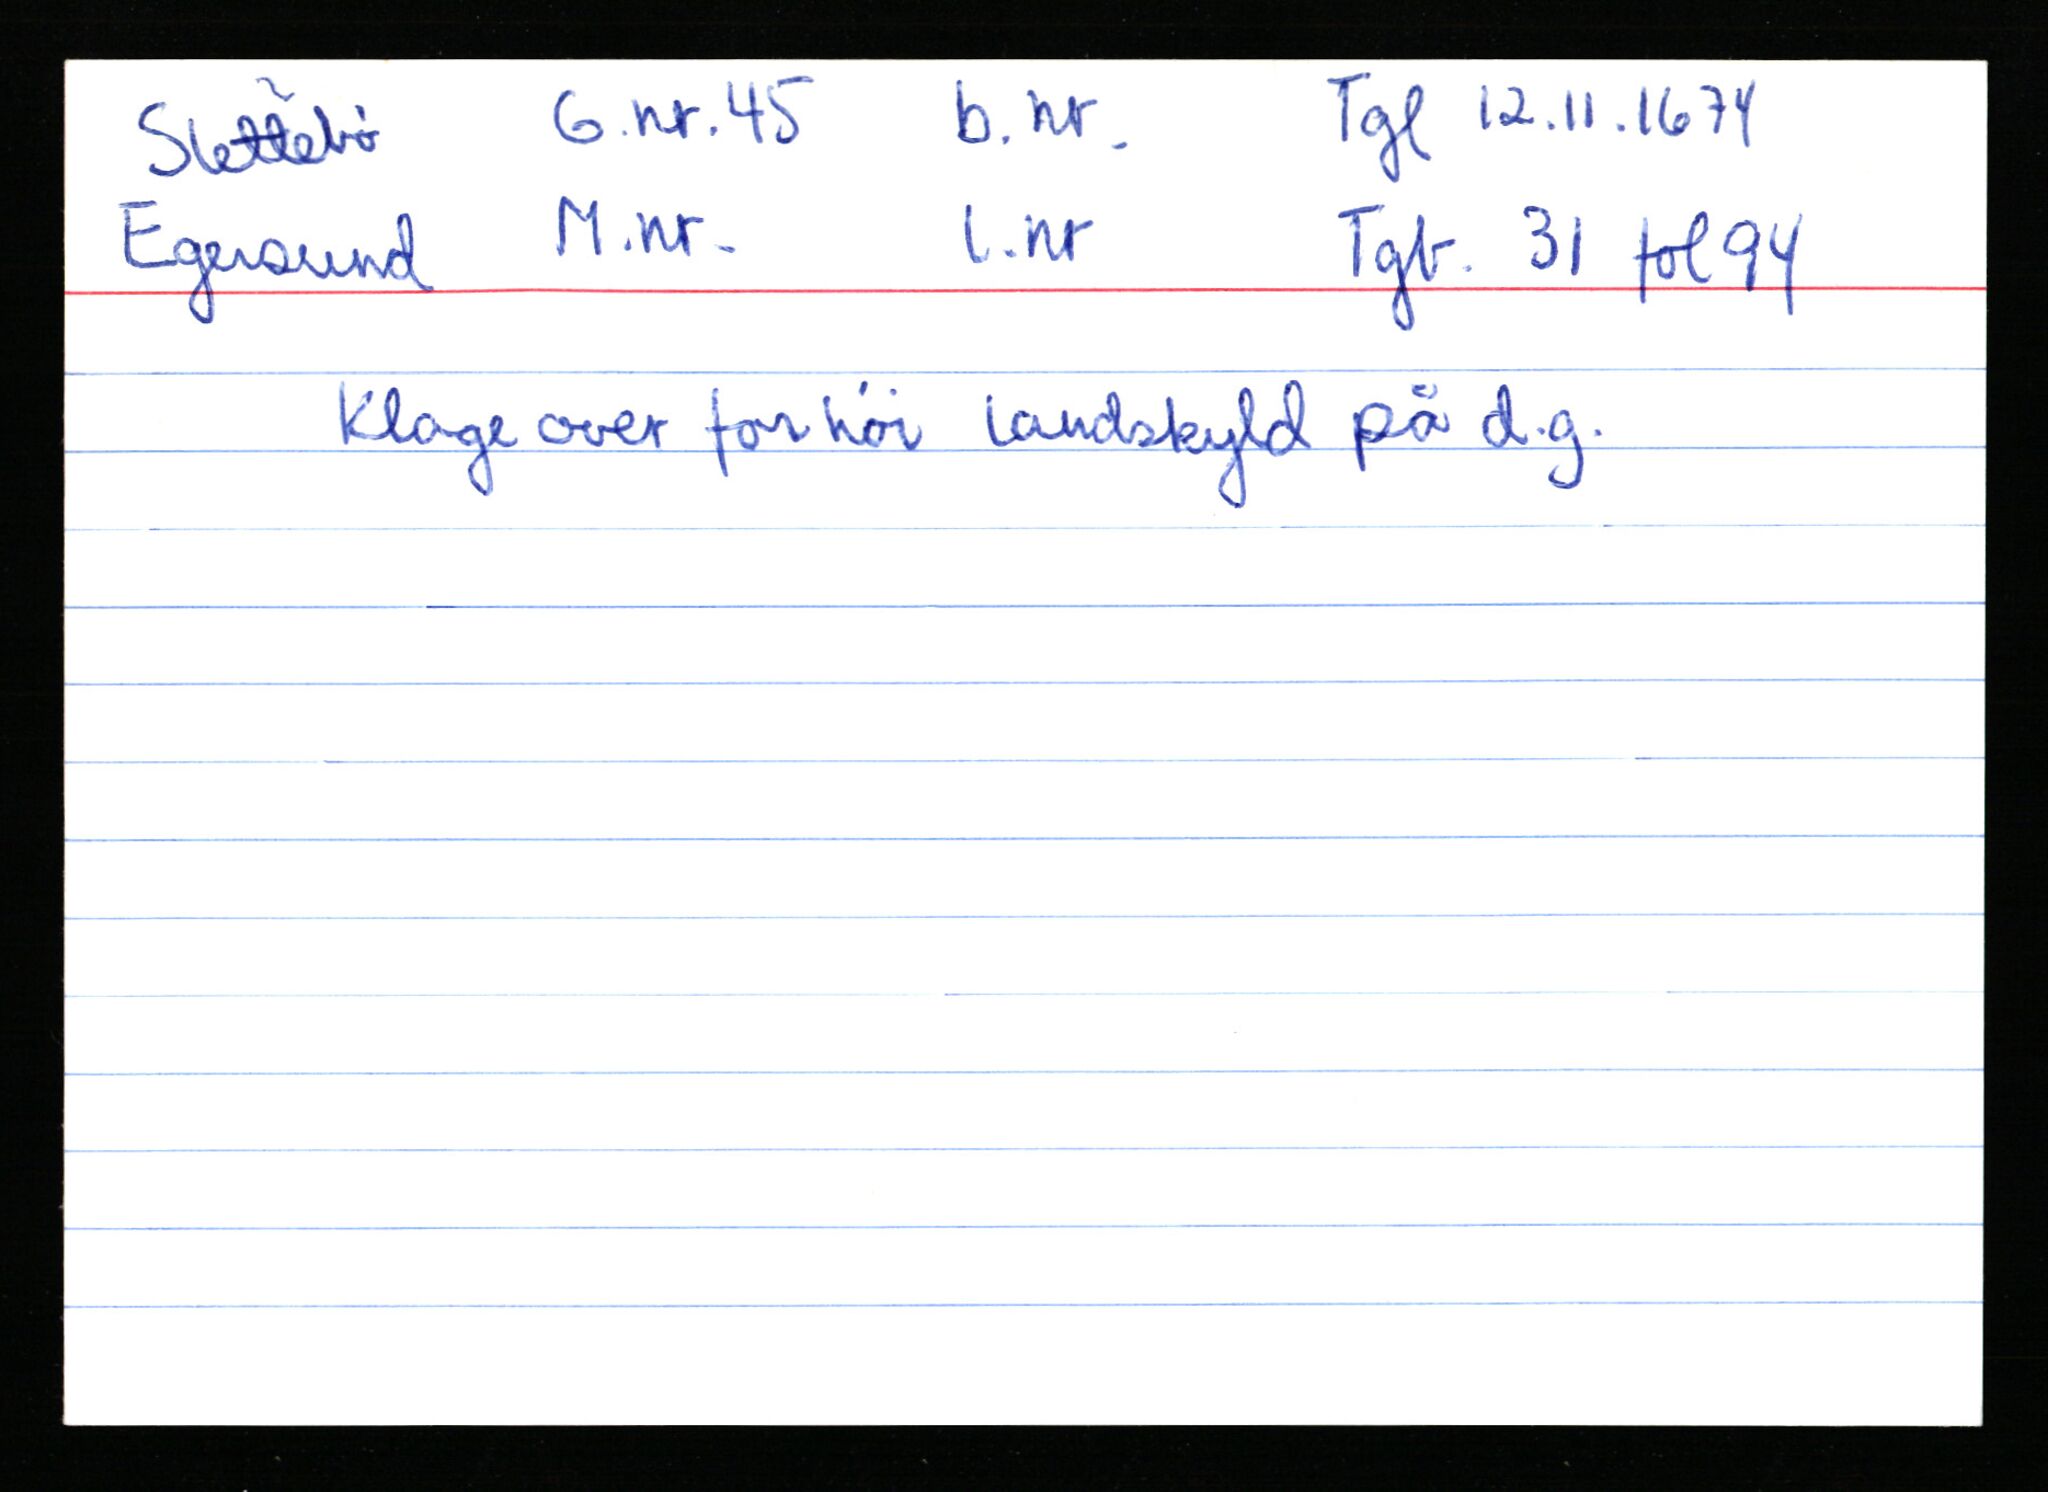 Slettebö G.nr. 45 b.nr. Tgl 12.11.1674
Egersund M.nr. l.nr Tgb. 31 fol 94
Klage over for höi landskyld på d.g.